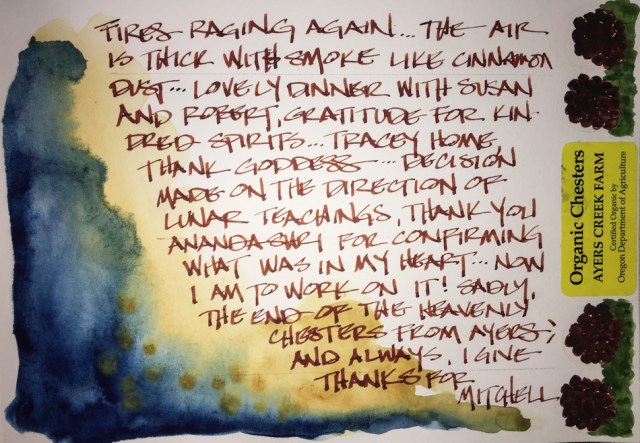 FIRES RAGING AGAIN... THE AIR
IS THICK WITH SMOKE LIKE CINNAMON
DUST... LOVELY DINNER WITH SUSAN
AND ROBERT, GRATITUDE FOR KIN-
DRED SPIRITS... TRACEY HOME,
THANK GODDESS... DECISION
MADE ON THE DIRECTION OF
LUNAR TEACHINGS, THANK YOU
ANANDASHRI FOR CONFIRMING
WHAT WAS IN MY HEART... NOW
I AM TO WORK ON IT! SADLY,
THE END OF THE HEAVENLY
CHESTERS FROM AYERS;
AND ALWAYS, I GIVE
THANKS FOR
MITCHELL
Organic Chesters
AYERS CREEK FARM
Certified Organic by
Oregon Department of Agriculture